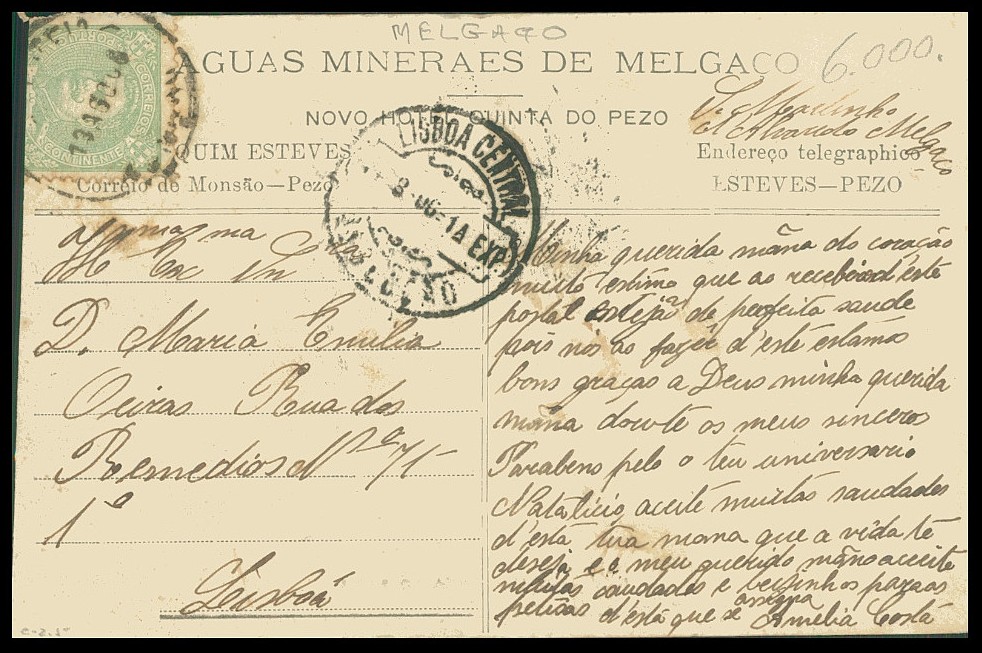 MELGAÇO
6.000.
AGUAS MINERAES DE MELGAÇO
NOVO HOTEL QUINTA DO PEZO
QUIM ESTEVES
Correio de Monsão—Pezo
Endereço telegraphico
ESTEVES—PEZO
Melgaço
CORREIOS
CONTINENTE
LISBOA CENTRAL
8-06-1A EXP.
D. Maria Emilia
Oeiras Rua dos
Remedios Nº 71
1º
Lisbôa
Minha querida mãna do coração
muito estimo que ao receberes d'este
postal estejas de perfeita saude
pois nós ao fazer d'este estamos
bons graças a Deus minha querida
mãna dou-te os meus sinceros
Parabens pelo o teu universario
Natalicio aceite muitas saudades
d'esta tua mana que a vida te
deseja e o meu querido mãno aceite
muitas saudades e beijinhos para as
d'está que se assigna Amelia Costa
c-2.5